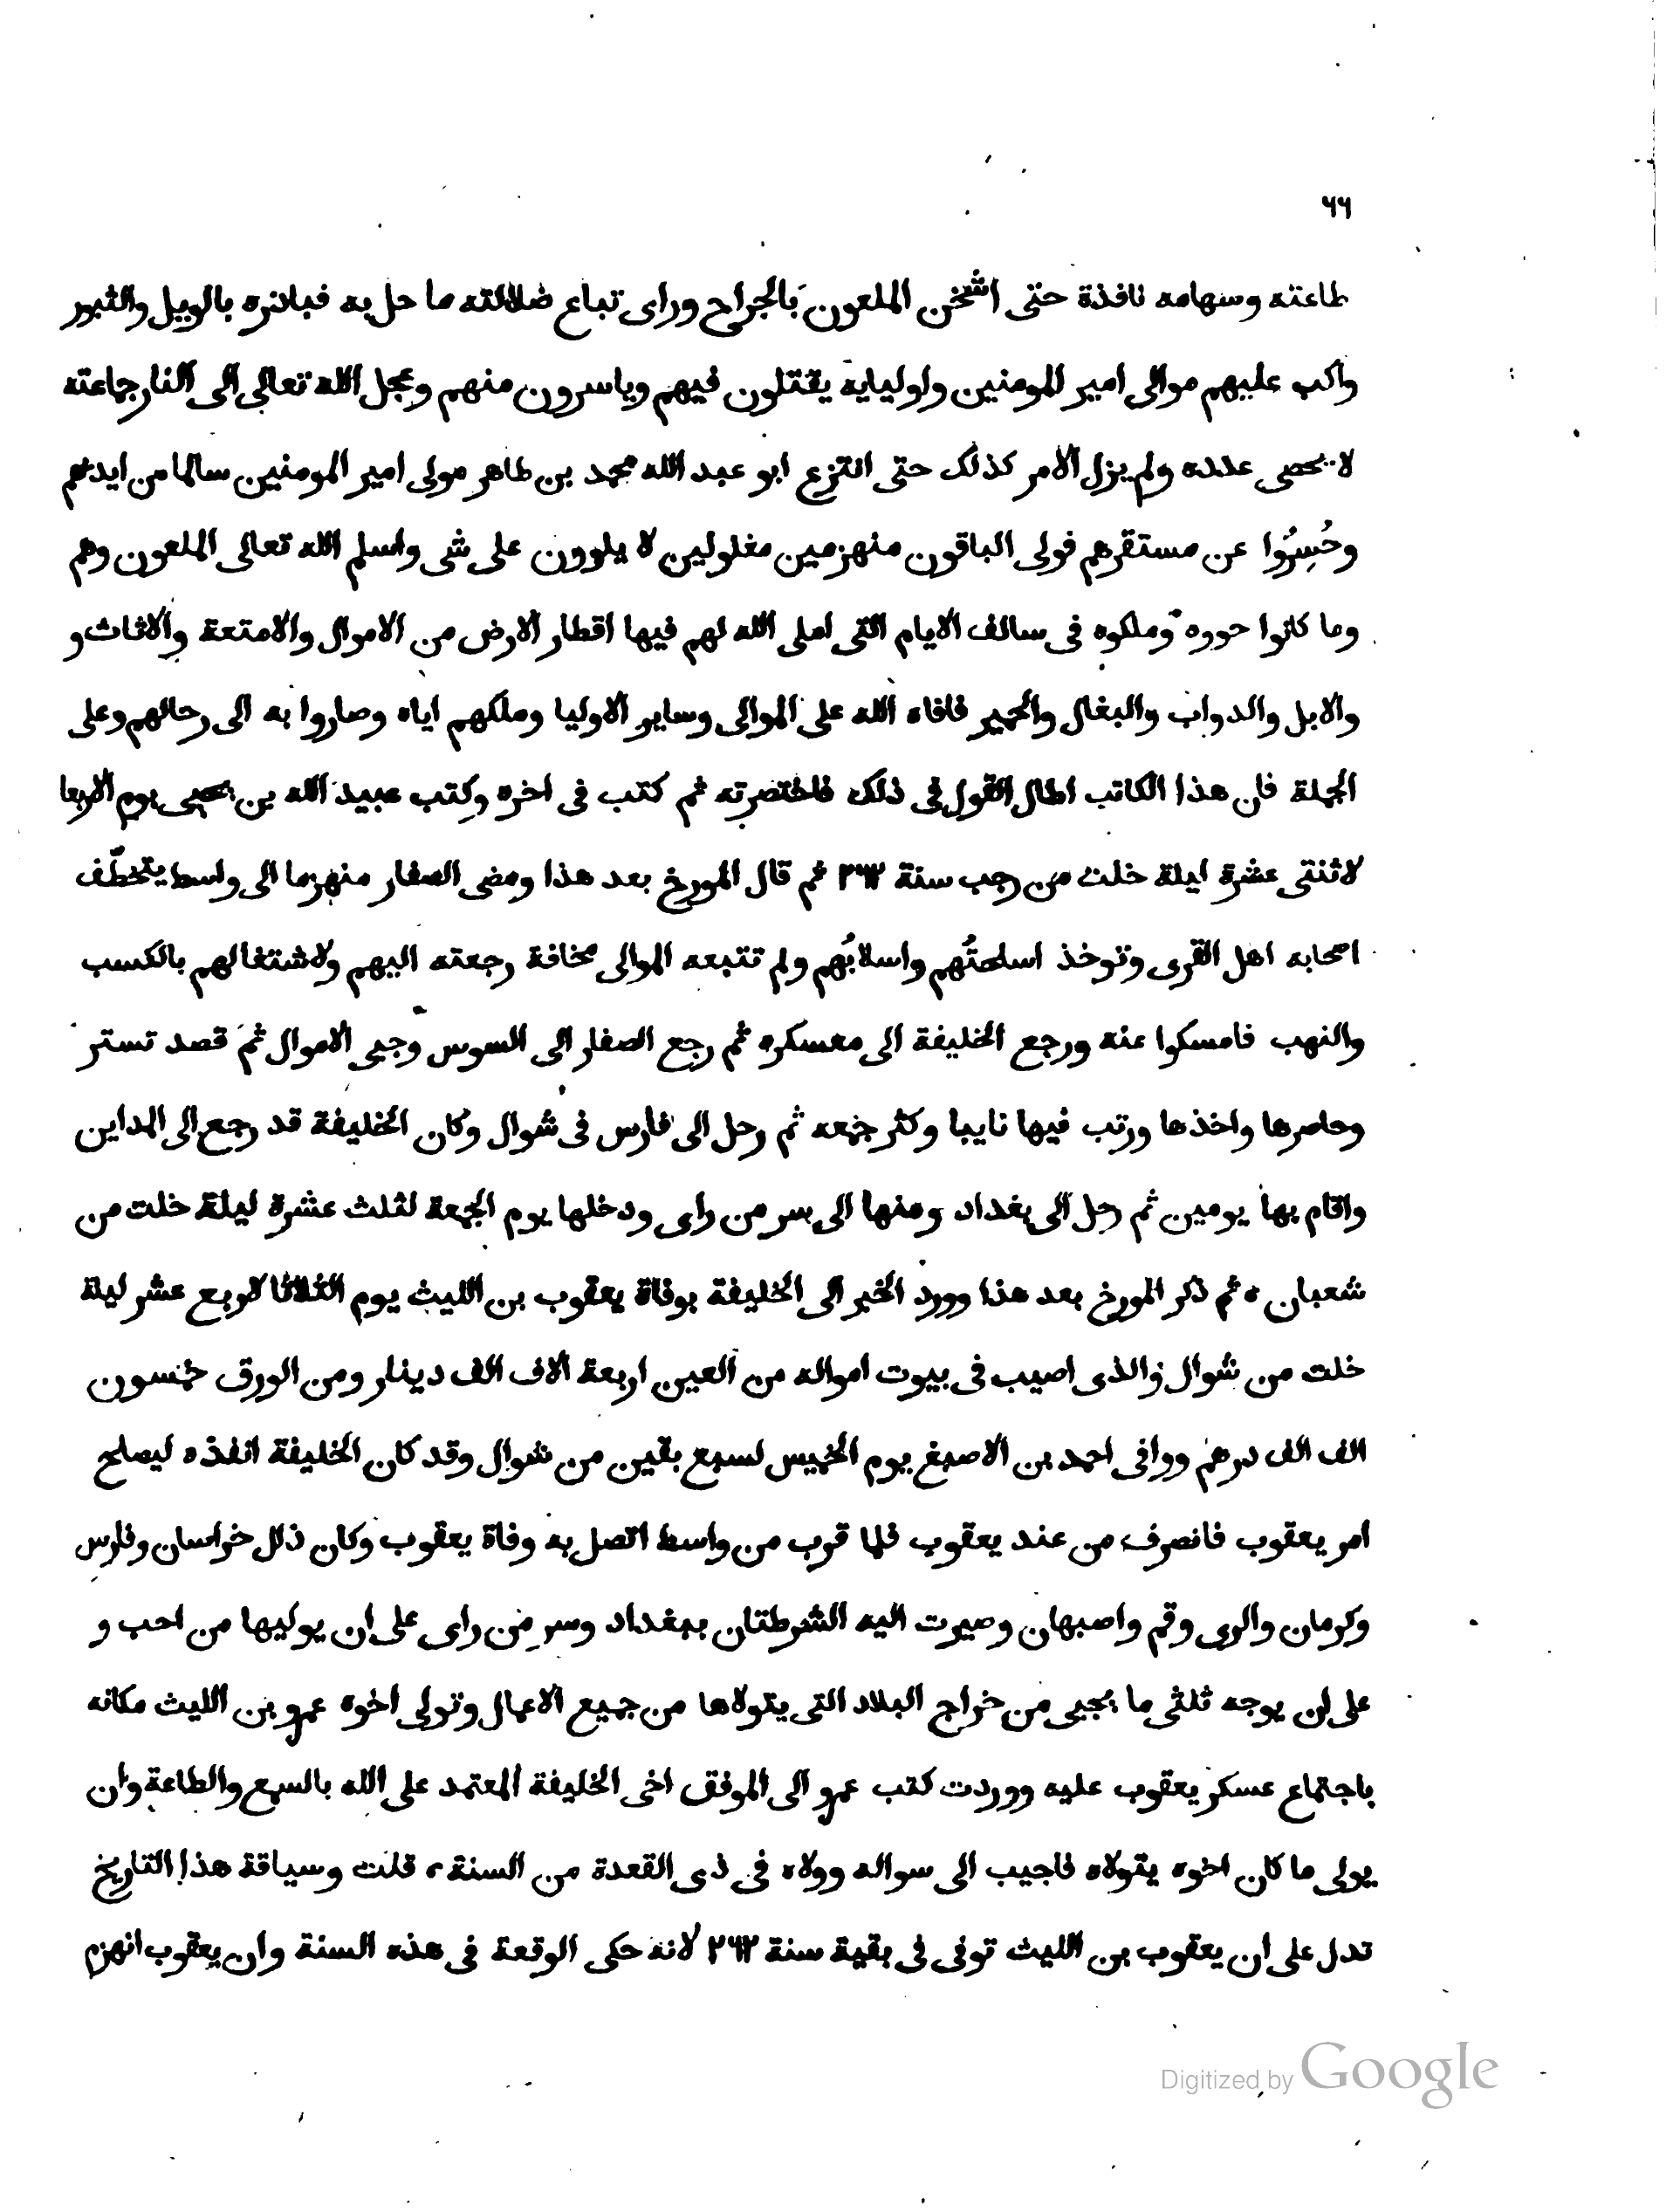 ٦٦
طاعته وسهامه نافذة حتى اثخن الملعون بالجراح وراى تباع ضلالته ما حل به فبادروه بالويل والثبور
واكب عليهم موالى امير المومنين واوليايه يقتلون فيهم وياسرون منهم وعجل الله تعالى الى النار جماعته
لا يحصى عدده ولم يزل الامر كذلك حتى انتزع ابو عبد الله محمد بن طاهر مولى امير المومنين سالما من ايدهم
وحُسِرُوا عن مستقرهم فولى الباقون منهزمين مغلولين لا يلوون على شى واسلم الله تعالى الملعون وهم
وما كانوا حووه وملكوه فى سالف الايام التى املى الله لهم فيها اقطار الارض من الاموال والامتعة والاثاث و
والابل والدواب والبغال والحمير فافاه الله على الموالى وساير الاوليا وملكهم اياه وصاروا به الى رحالهم وعلى
الجملة فان هذا الكاتب اطال القول فى ذلك فاختصرته ثم كتب فى اخره وكتب عبيد الله بن يحيى يوم الاربعا
لاثنتى عشرة ليلة خلت من رجب سنة ٢٦٢ ثم قال المورخ بعد هذا ومضى الصفار منهزما الى واسط يتخطّف
اصحابه اهل القرى وتوخذ اسلحتُهم واسلابُهم ولم تتبعه الموالى مخافة رجعته اليهم ولاشتغالهم بالكسب
والنهب فامسكوا عنه ورجع الخليفة الى معسكره ثم رجع الصفار الى السوس وجبى الاموال ثم قصد تستر
وحاصرها واخذها ورتب فيها نايبا وكثر جمعه ثم رحل الى فارس فى شوال وكان الخليفة قد رجع الى المداين
واقام بها يومين ثم رحل الى بغداد ومنها الى سر من راى ودخلها يوم الجمعة لثلث عشرة ليلة خلت من
شعبان ه ثم ذكر المورخ بعد هذا وورد الخبر الى الخليفة بوفاة يعقوب بن الليث يوم الثلاثا لاربع عشر ليلة
خلت من شوال والذى اصيب فى بيوت امواله من العين اربعة الاف الف دينار ومن الورق خمسون
الف الف درهم ووافى احمد بن الاصبغ يوم الخميس لسبع بقين من شوال وقد كان الخليفة انفذه ليصلح
امر يعقوب فانصرف من عند يعقوب فلما قرب من واسط اتصل به وفاة يعقوب وكان ذلل خراسان وفارس
وكرمان والرى وقم واصبهان وصيرت اليه الشرطتان ببغداد وسر من راى على ان يوليها من احب و
على ان يوجه ثلثى ما يجبى من خراج البلاد التى يتولاها من جميع الاعمال وتولى اخوه عمرو بن الليث مكانه
باجتماع عسكر يعقوب عليه ووردت كتب عمرو الى الموفق اخى الخليفة المعتمد على الله بالسمع والطاعة وان
يولى ما كان اخوه يتولاه فاجيب الى سواله وولاه فى ذى القعدة من السنة ه قلت وسياقة هذا التاريخ
تدل على ان يعقوب بن الليث توفى فى بقية سنة ٢٦٢ لانه حكى الوقعة فى هذه السنة وان يعقوب انهزم
Digitized by Google